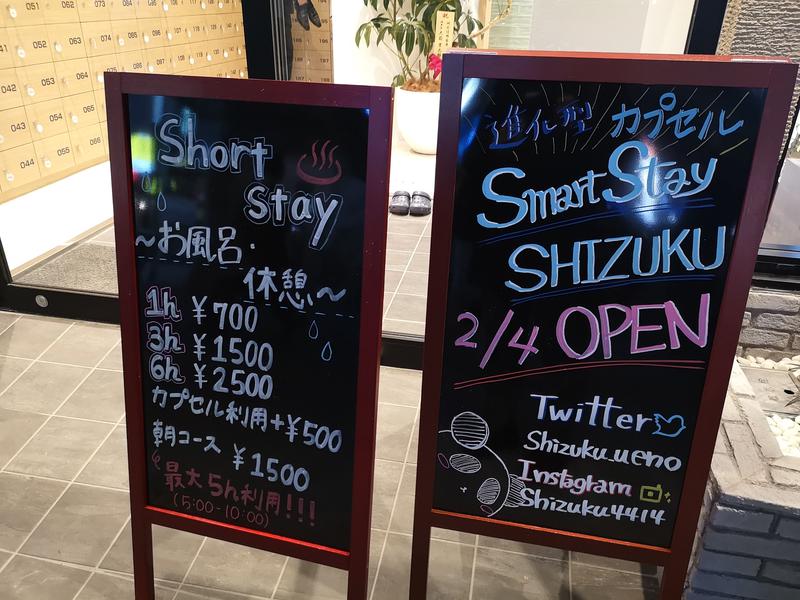 Short
stay
~お風呂・
休憩~
1h ¥700
3h ¥1500
6h ¥2500
カプセル利用+¥500
朝コース ¥1500
最大5h利用!!!
(5:00-10:00)
進化型 カプセル
Smart Stay
SHIZUKU
2/4 OPEN
Twitter
Shizuku_ueno
Instagram
Shizuku4414
051
052
053
063
064
065
066
042
043
044
054
055